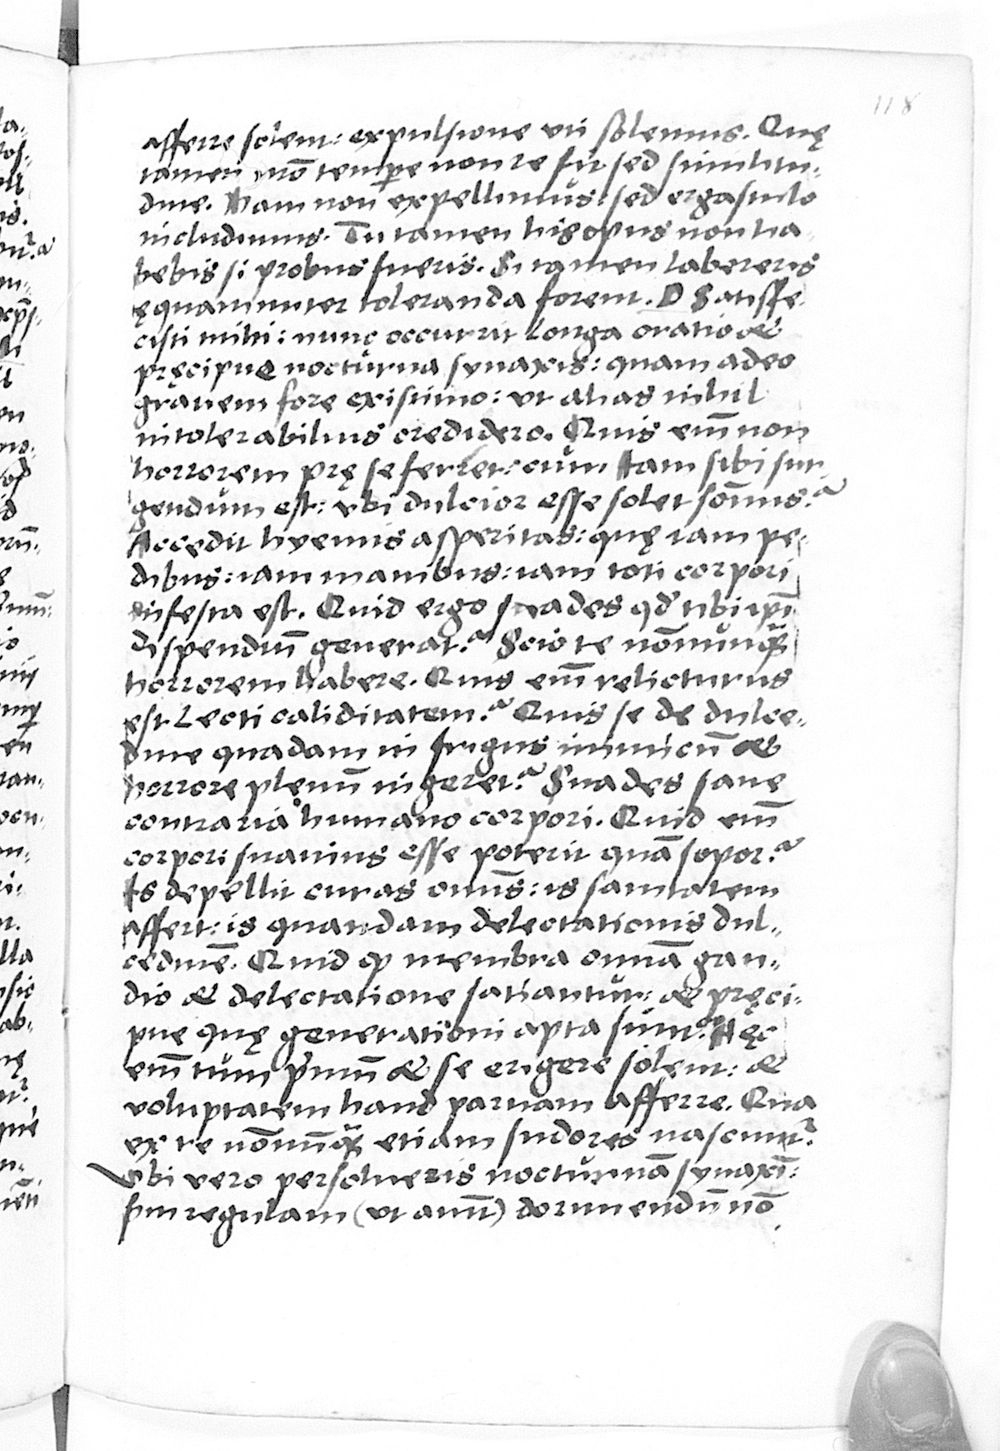 118
afferre solent: expulsione uti solemus. Quę
tamen nõ tempere non re fit sed similitu-
dine. Nam non expellimus: sed ergastulo
includimus. Tu tamen his opus non ha-
bebis si probus fueris. Si tamen labereris
ęquanimiter toleranda forent. D Satisfe-
cisti mihi: nunc occurrit longa oratio &
pręcipue nocturna synaxis: quam adeo
grauem fore existimo: ut alias nihil
intolerabilius credidero. Quis em̃ non
horrorem prę se ferret: cum tam sibi sur-
gendum est: ubi dulcior esse solet sõnus?
Accedit hyemis asperitas: quę tam pe-
dibus: tam manibus: tam toti corpori
infesta est. Quid ergo suades qd tibi ipi̅
dispendiũ generat? Scio te nõnunq̃
horrorem habere. Quis em̃ relicturus
est Lecti caliditatem? Quis se de dulce-
dine quadam in frigus inimicũ &
horrore plenũ ingeret? Suades sane
contraria humano corpori. Quid em̃
corpori suauius esse poterit quã sopor?
Is depellit curas omñs: is sanitatem
affert: is quandam delectationis dul-
cedinẽ. Quid ꝙ membra omnã gau-
dio & delectatione satiantur: & pręci-
pue quę generationi apta sunt? Hęc
em̃ tum primũ & se erigere solent: &
uoluptatem haud paruam afferre. Qua
ex re nõnunq̃ etiam sudores nascuntr̃.
Ubi uero persolueris nocturnã synaxĩ:
siu regulam (ut aiunt) dormiendũ nõ